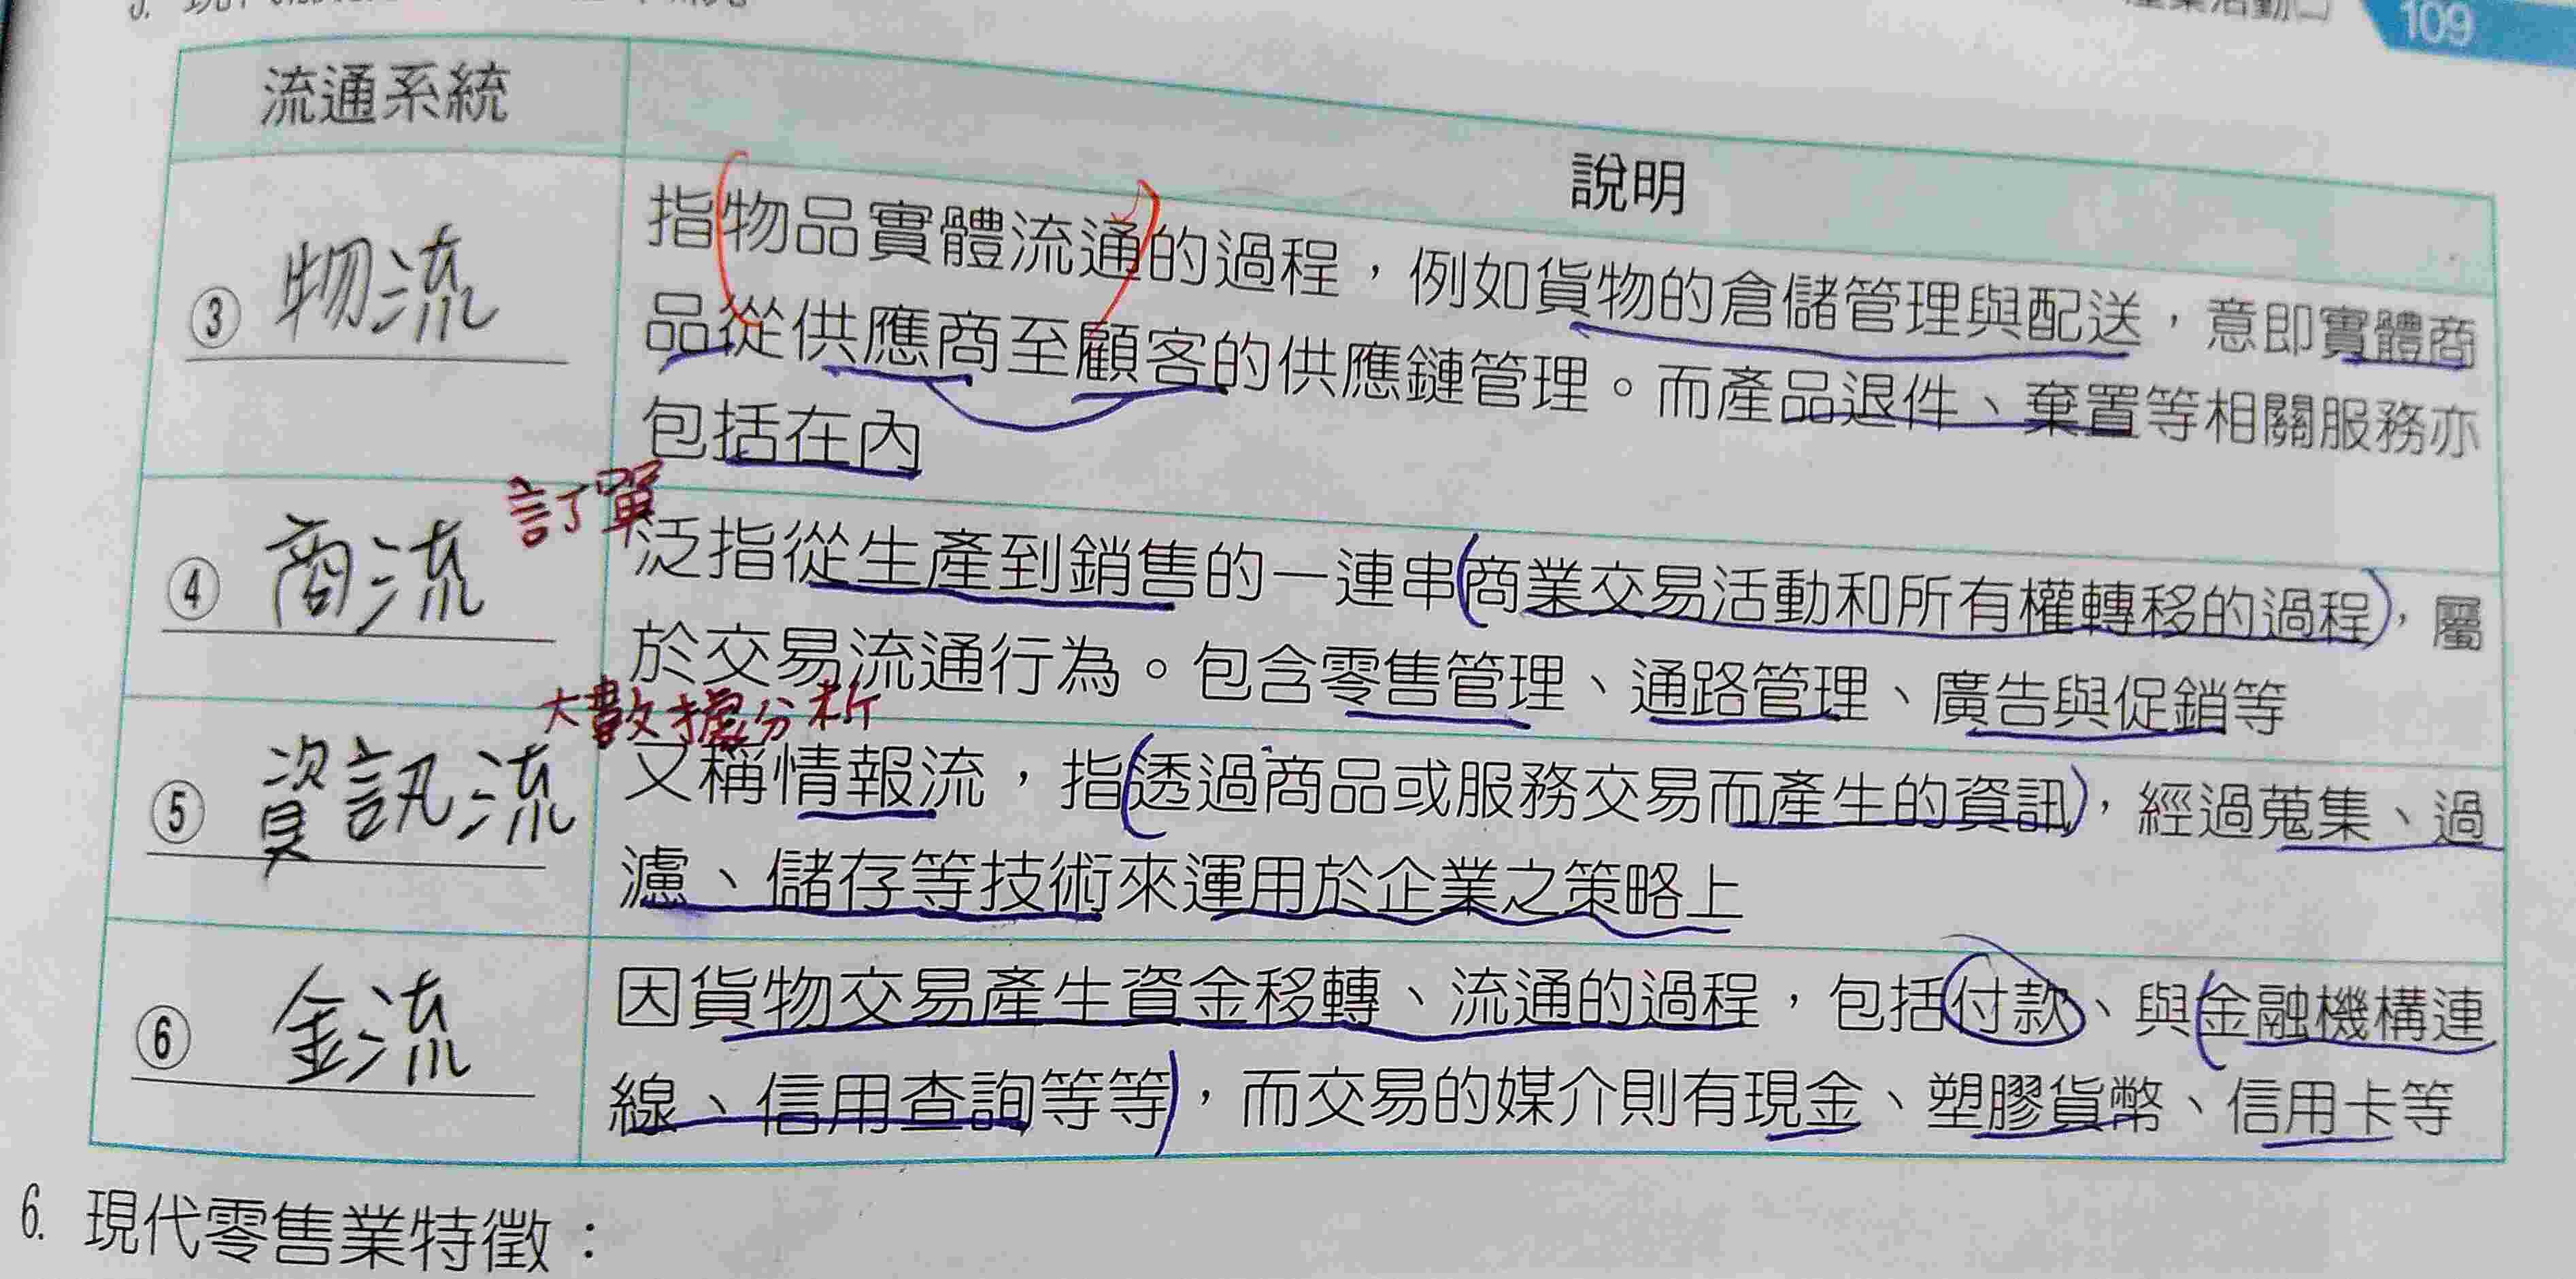 產業活動
109
流通系統
說明
③ 物流
指物品實體流通的過程，例如貨物的倉儲管理與配送，意即實體商
品從供應商至顧客的供應鏈管理。而產品退件、棄置等相關服務亦
包括在內
④ 商流
訂單
泛指從生產到銷售的一連串商業交易活動和所有權轉移的過程，屬
於交易流通行為。包含零售管理、通路管理、廣告與促銷等
⑤ 資訊流
大數據分析
又稱情報流，指透過商品或服務交易而產生的資訊，經過蒐集、過
濾、儲存等技術來運用於企業之策略上
⑥ 金流
因貨物交易產生資金移轉、流通的過程，包括付款、與金融機構連
線、信用查詢等等，而交易的媒介則有現金、塑膠貨幣、信用卡等
6. 現代零售業特徵：